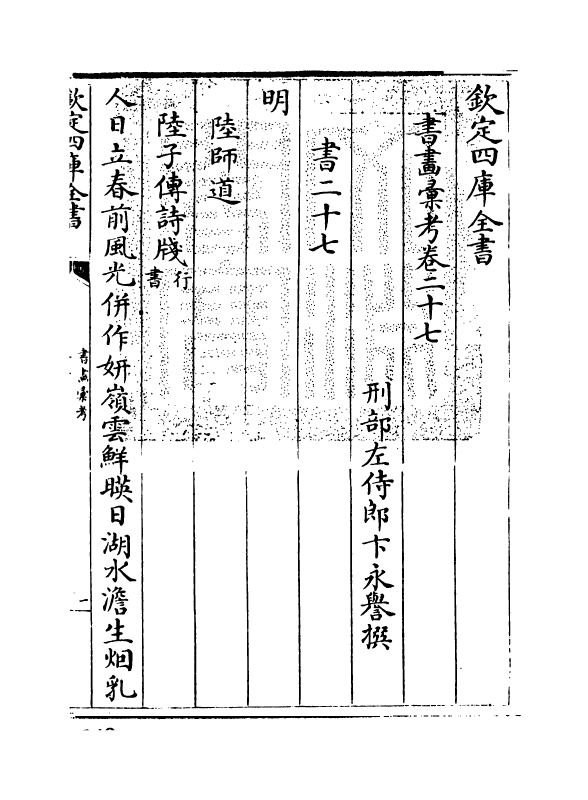 欽定四庫全書
書畫彚考卷二十七
刑部左侍郎卞永譽撰
書二十七
明
陸師道
陸子傳詩牋行書
人日立春前風光併作妍嶺雲鮮暎日湖水澹生烟乳
欽定四庫全書
書畫彚考
一